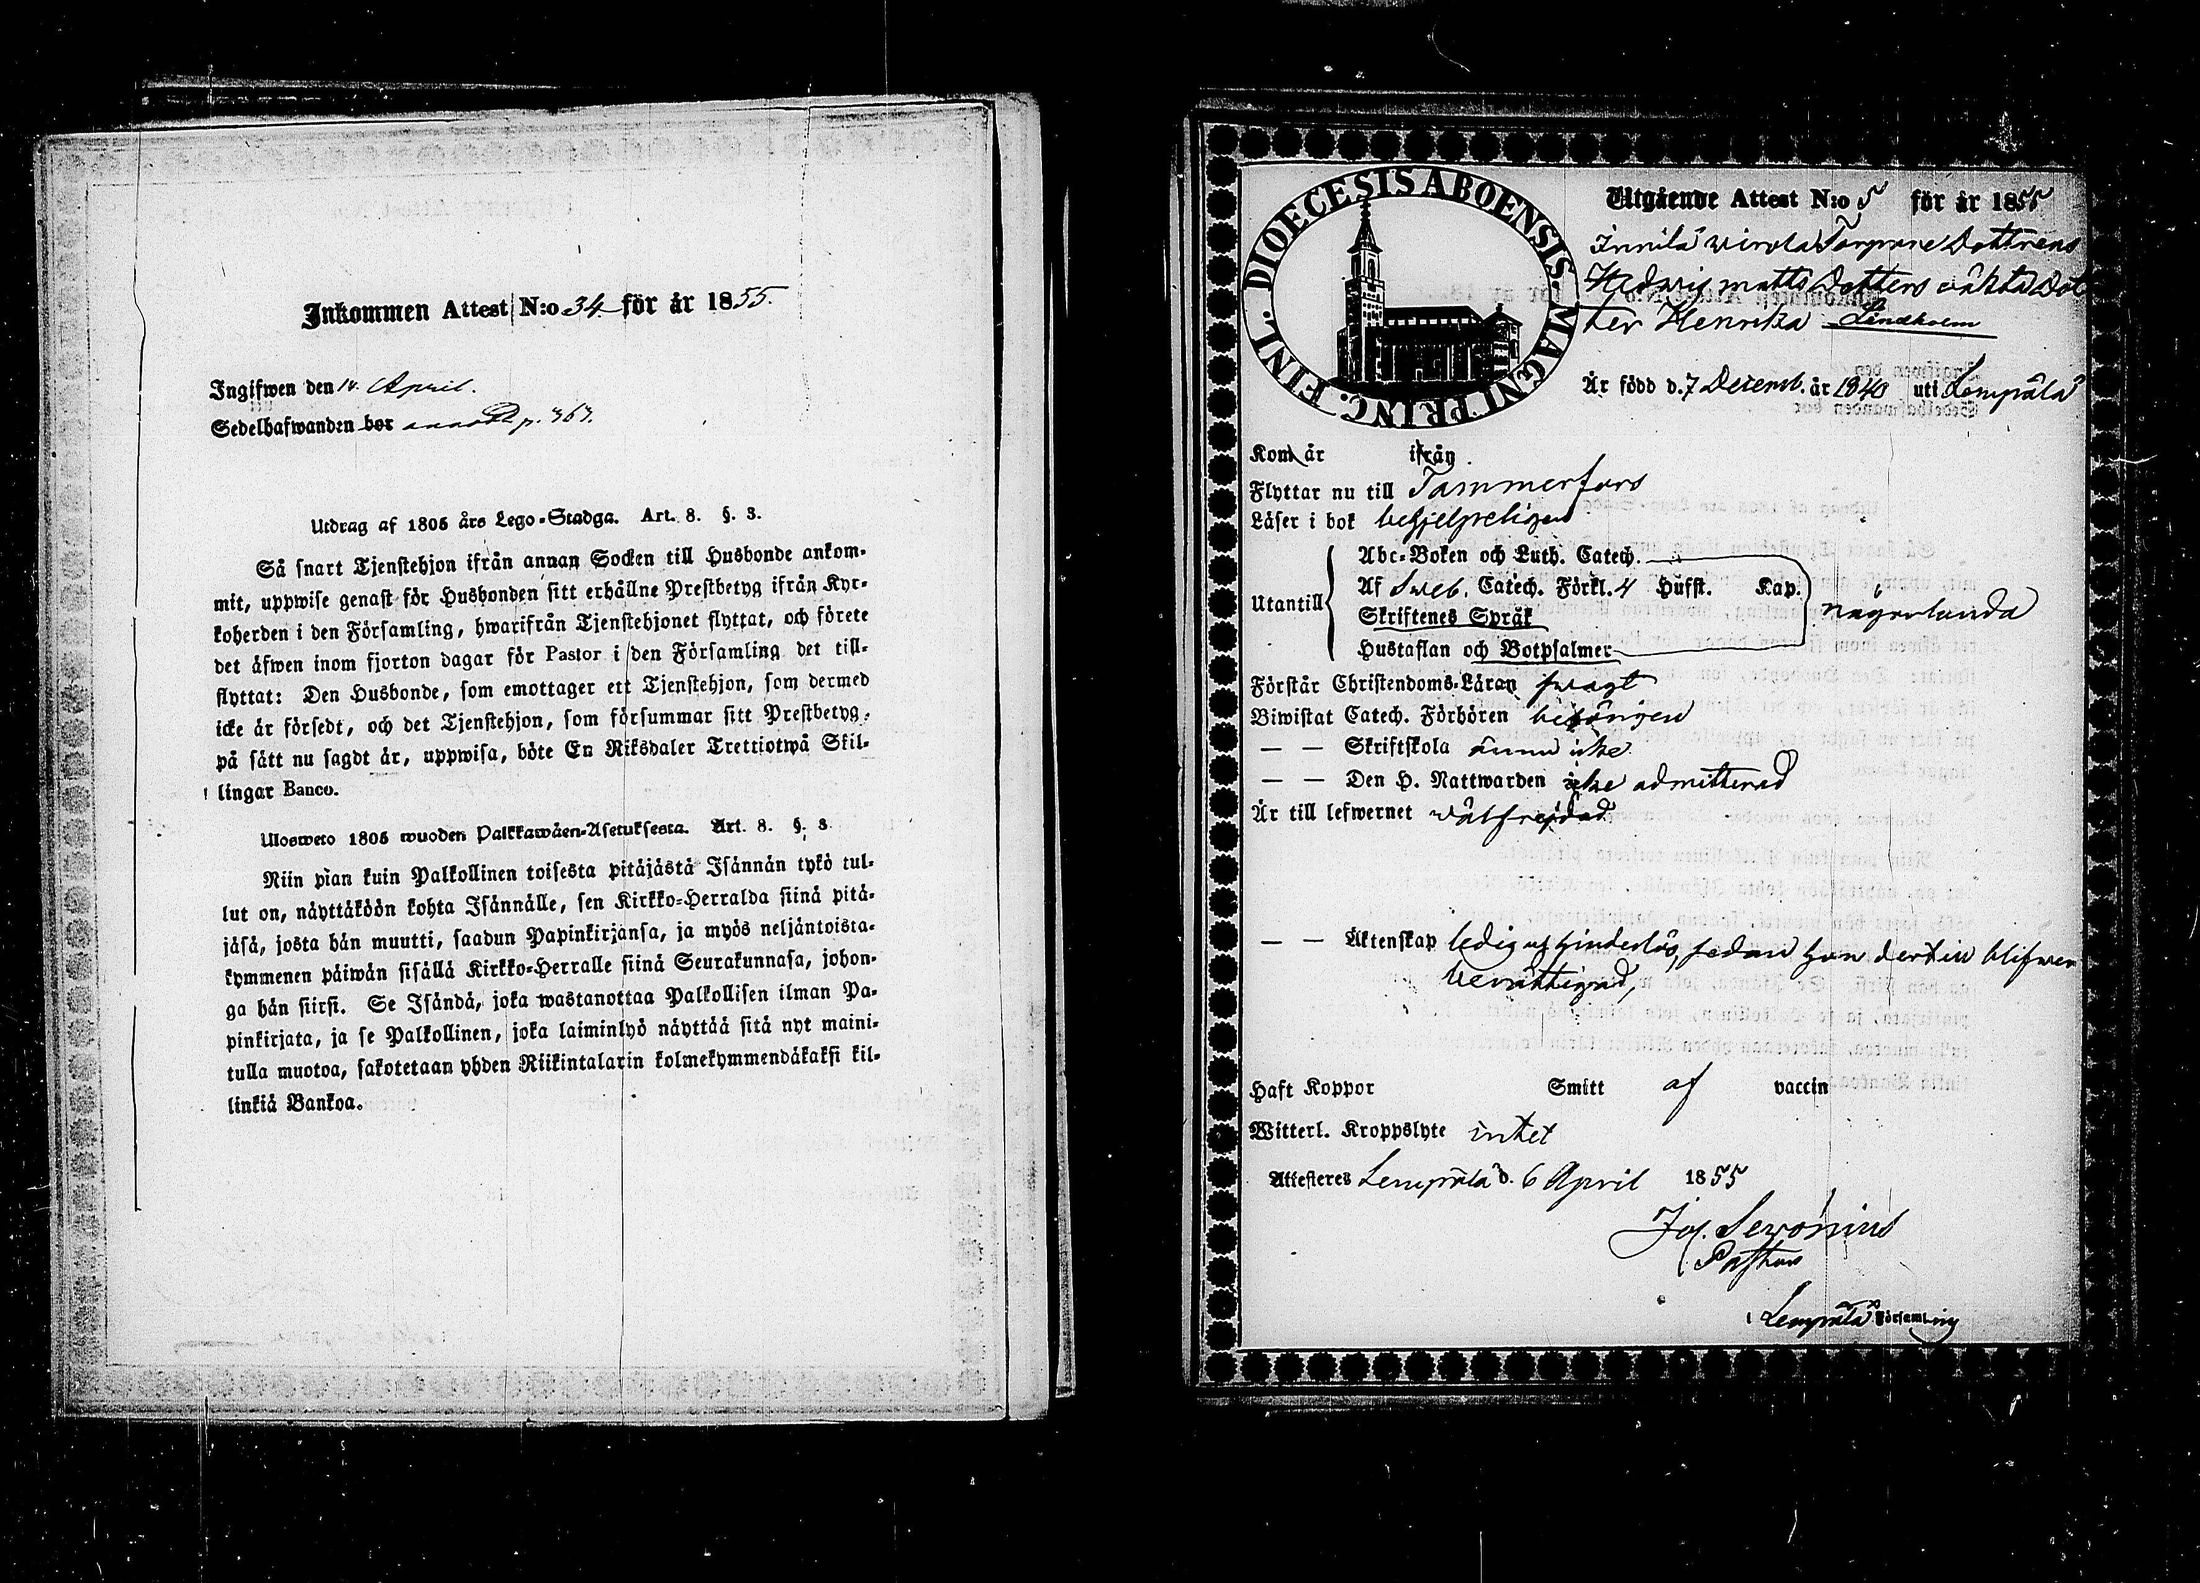 Inkommen Attest N:o 34 för år 1855.
Ingifwen den 14. April.
Sedelhafwanden bor p. 363.
Utdrag af 1805 års Lego-Stadga. Art. 8. §. 3.
Så snart Tjenstehjon ifrån annan Socken till Husbonde ankom-
mit, uppwise genast för Husbonden sitt erhållne Prestbetyg ifrån Kyr-
koherden i den Församling, hwarifrån Tjenstehjonet flyttat, och förete
det äfwen inom fjorton dagar för Pastor i den Församling det till-
flyttat: Den Husbonde, som emottager ett Tjenstehjon, som dermed
icke är försedt, och det Tjenstehjon, som försummar sitt Prestbetyg,
på sätt nu sagdt är, uppwisa, böte En Riksdaler Trettiotwå Skil-
lingar Banco.
Ulosweto 1805 wuoden Palkkawäen-Asetuksesta. Art. 8. §. 3
Niin pian kuin Palkollinen toisesta pitäjästä Isännän tykö tul-
lut on, näyttäköön kohta Isännälle, sen Kirkko-Herralda siinä pitä-
jäsä, josta hän muutti, saadun Papinkirjansa, ja myös neljäntoista-
kymmenen päiwän sisällä Kirkko-Herralle siinä Seurakunnasa, johon-
ga hän siirsi. Se Isändä, joka wastanottaa Palkollisen ilman Pa-
pinkirjata, ja se Palkollinen, joka laiminlyö näyttää sitä nyt maini-
tulla muotoa, sakotetaan yhden Riikintalarin kolmekymmendäkaksi kil-
linkiä Bankoa.
DIOECESIS ABOENSIS. MAGNI PRINC. FINL.
Utgående Attest N:o 5 för år 1855
Innilä Dottrens
Hedvig Matts Dotters oäkta Dot
ter Henrika Lindholm
Är född d. 7 Decemb. år 1840 uti Lempälä
Kom år ifrån
Flyttar nu till Tammerfors
Läser i bok behjelpeligen
Utantill
Abc-Boken och Luth. Catech.
Af Sveb. Catech. Förkl. 4 Hufst. Kap.
Skriftenes Språk
Hustaflan och Botpsalmer
någorlunda
Förstår Christendoms-Läran swagt
Biwistat Catech. Förhören behörigen
— — Skriftskola ännu icke
— — Den H. Nattwarden icke admitterad
Är till lefwernet wälfrejdad
— — Äktenskap ledig och hinderlös, sedan hon dertill blifwen
berättigad,
Haft Koppor Smitt af vaccin
Witterl. Kroppslyte intet
Attesteras Lempälä d. 6 April 1855
Jos. Sevonius
Pastor
i Lempälä Församling